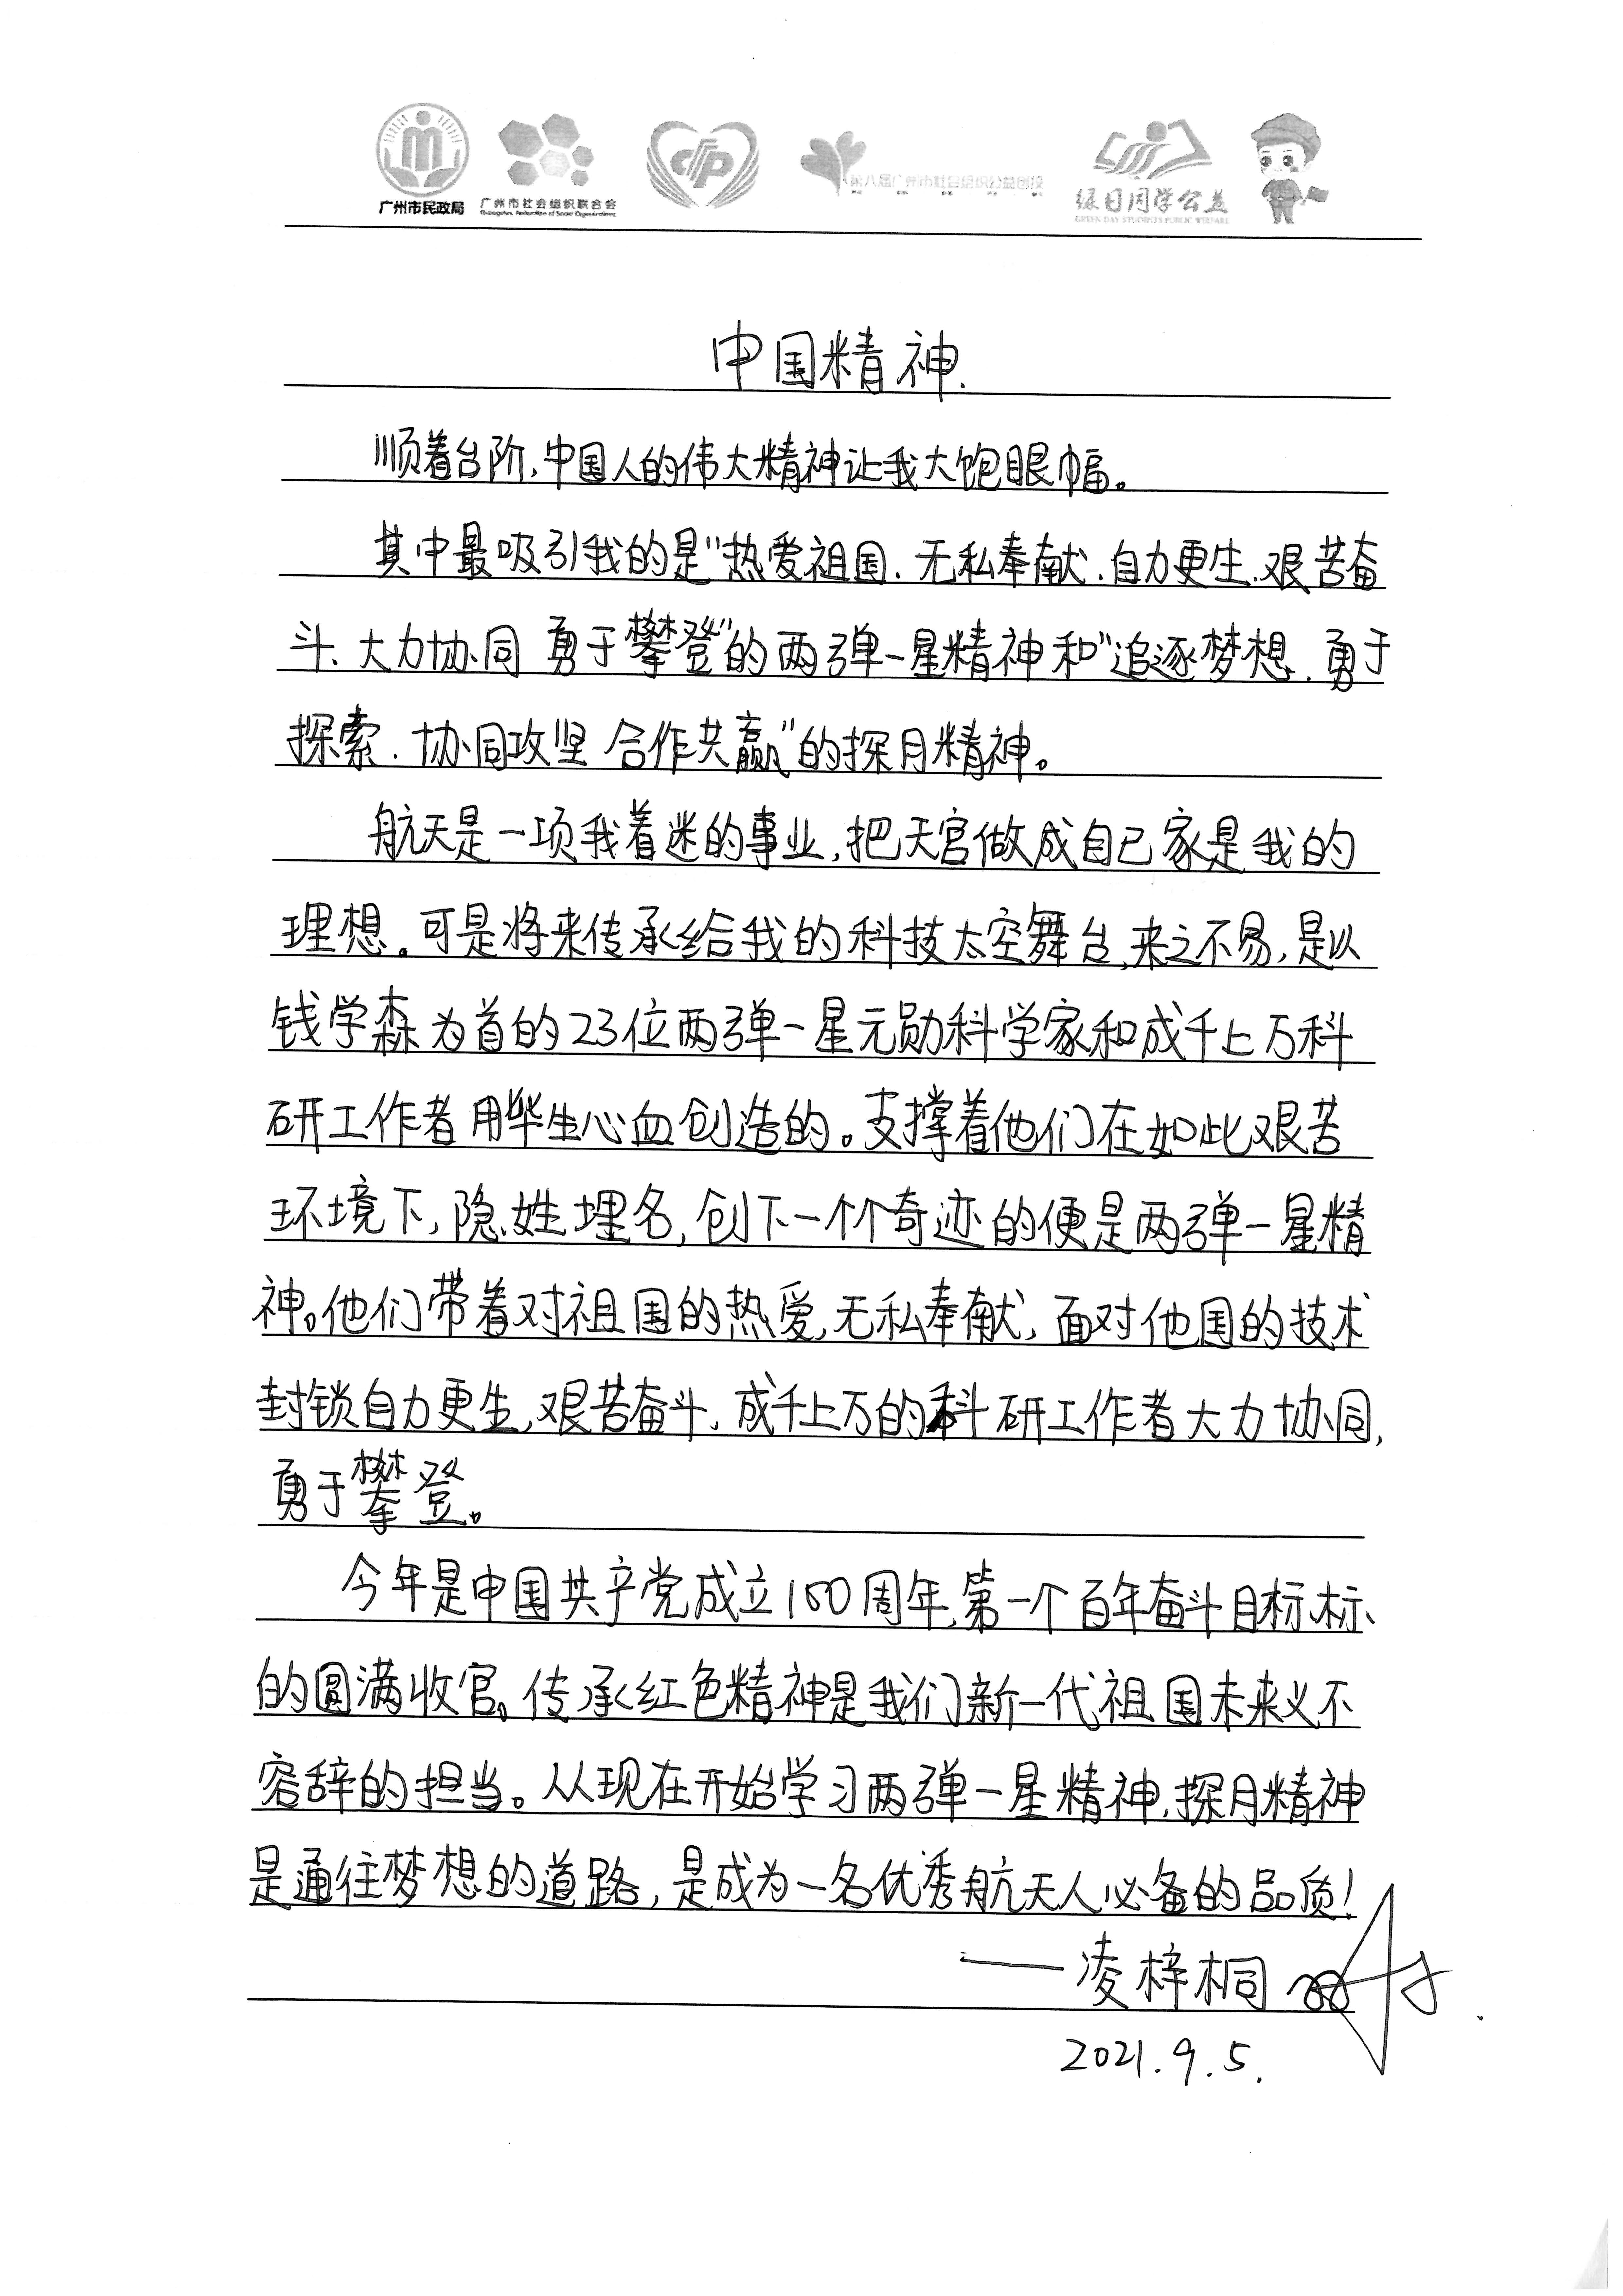 广州市民政局
广州市社会组织联合会
Guangzhou Federation of Social Organizations
第八届广州市社会组织公益创投
绿日同学公益
GREEN DAY STUDENTS PUBLIC WELFARE
中国精神.
顺着台阶,中国人的伟大精神让我大饱眼幅。
其中最吸引我的是“热爱祖国、无私奉献、自力更生、艰苦奋
斗、大力协同 勇于攀登”的两弹一星精神和“追逐梦想、勇于
探索、协同攻坚 合作共赢”的探月精神。
航天是一项我着迷的事业,把天宫做成自己家是我的
理想。可是将来传承给我的科技太空舞台,来之不易,是以
钱学森为首的23位两弹一星元勋科学家和成千上万科
研工作者用毕生心血创造的。支撑着他们在如此艰苦
环境下,隐姓埋名,创下一个个奇迹的便是两弹一星精
神。他们带着对祖国的热爱,无私奉献,面对他国的技术
封锁自力更生,艰苦奋斗,成千上万的科研工作者大力协同,
勇于攀登。
今年是中国共产党成立100周年,第一个百年奋斗目标、标、
的圆满收官。传承红色精神是我们新一代祖国未来义不
容辞的担当。从现在开始学习两弹一星精神,探月精神
是通往梦想的道路,是成为一名优秀航天人必备的品质!
——凌梓桐
2021.9.5.